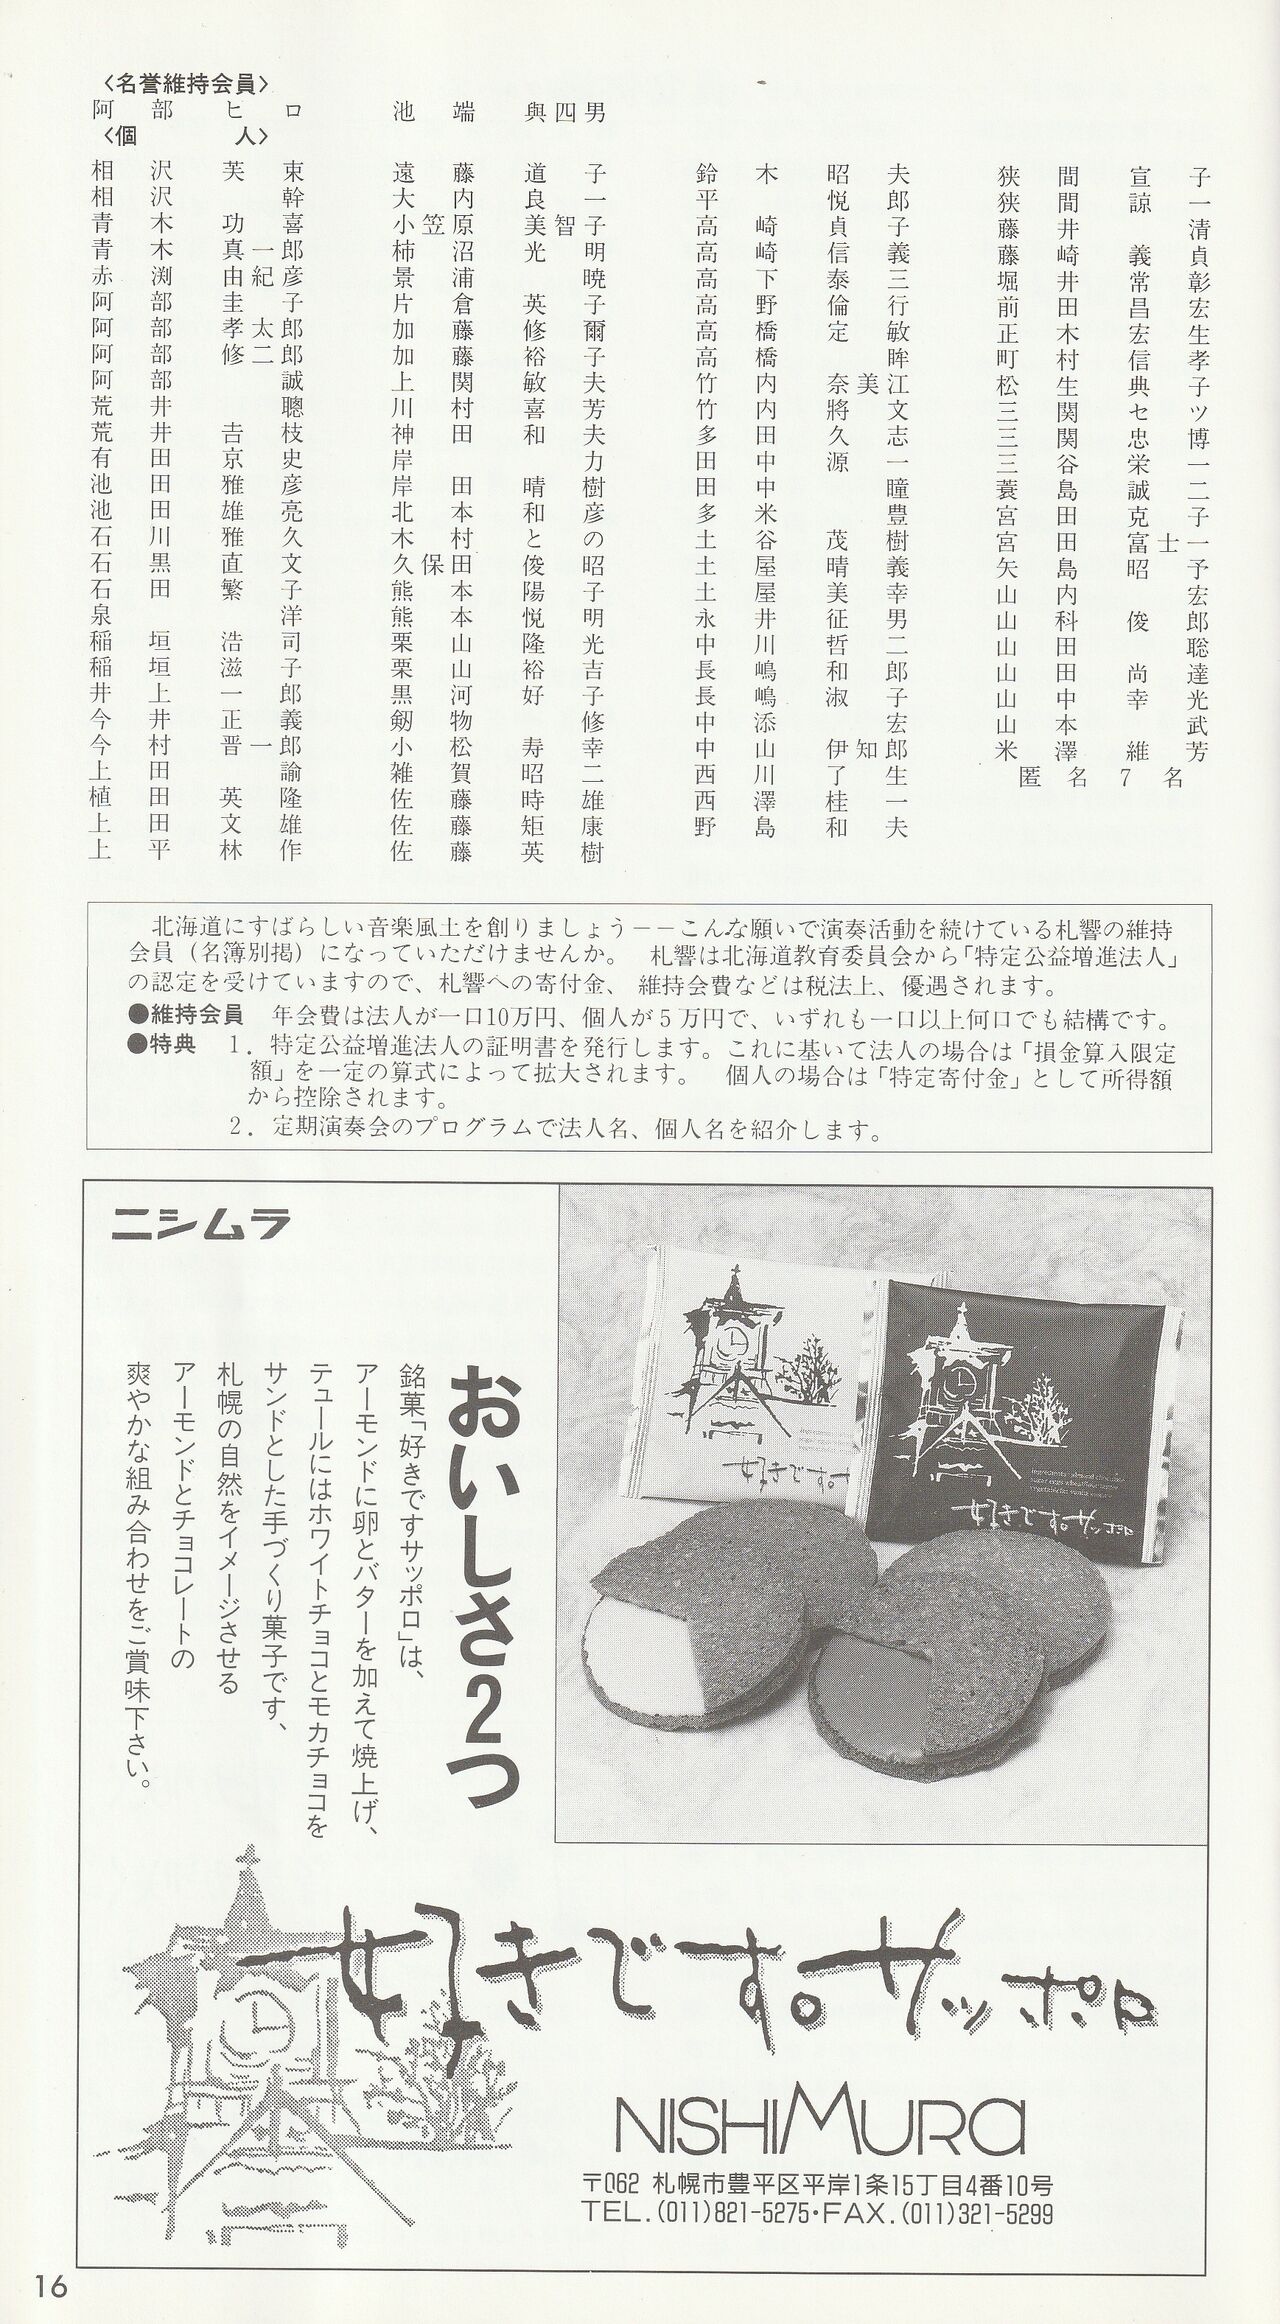 〈名誉維持会員〉
阿部ヒロ　池端與四男
〈個　人〉
相沢芙束
相沢幹
青木功喜
青木真一郎
赤渕由紀彦
阿部圭子
阿部孝太郎
阿部修二郎
阿部誠
荒井聰
荒井𠮷枝
有田京史
池田雅彦
池田雄亮
石川雅久
石黒直文
石田繁子
泉洋
稲垣浩司
稲垣滋子
井上一郎
今井正義
今村晋一郎
上田諭
植田英隆
上田文雄
上平林作
遠藤道子
大内良一
小笠原美智子
柿沼光明
景浦暁
片倉英子
加藤修爾
加藤裕子
上関敏夫
川村喜芳
神田和夫
岸力
岸田晴樹
北本和彦
木村との
久保田俊昭
熊本陽子
熊本悦明
栗山隆光
栗山裕吉
黒河好子
剱物修
小松寿幸
雑賀昭二
佐藤時雄
佐藤矩康
佐藤英樹
鈴木昭夫
平悦郎
高崎貞子
高崎信義
高下泰三
高野倫行
高橋定敏
高橋眸
竹内奈美江
竹内將文
多田久志
田中源一
田中瞳
多米豊
土谷茂樹
土屋晴義
土屋美幸
永井征男
中川哲二
長嶋和郎
長嶋淑子
中添宏
中山伊知郎
西川了生
西澤桂一
野島和夫
狭間宣子
狭間諒一
藤井清
藤崎義貞
堀井常彰
前田昌宏
正木宏生
町村信孝
松生典子
三関セツ
三関忠博
三谷栄一
蓑島誠二
宮田克子
宮田富士一
矢島昭予
山内宏
山科俊郎
山田聡
山田尚達
山中幸光
山本武
米澤維芳
匿名7名
北海道にすばらしい音楽風土を創りましょう－－こんな願いで演奏活動を続けている札響の維持
会員（名簿別掲）になっていただけませんか。　札響は北海道教育委員会から「特定公益増進法人」
の認定を受けていますので、札響への寄付金、維持会費などは税法上、優遇されます。
●維持会員　年会費は法人が一口10万円、個人が５万円で、いずれも一口以上何口でも結構です。
●特典　１．特定公益増進法人の証明書を発行します。これに基いて法人の場合は「損金算入限定
額」を一定の算式によって拡大されます。　個人の場合は「特定寄付金」として所得額
から控除されます。
２．定期演奏会のプログラムで法人名、個人名を紹介します。
ニシムラ
おいしさ2つ
銘菓「好きですサッポロ」は、
アーモンドに卵とバターを加えて焼上げ、
テュールにはホワイトチョコとモカチョコを
サンドとした手づくり菓子です、
札幌の自然をイメージさせる
アーモンドとチョコレートの
爽やかな組み合わせをご賞味下さい。
好きです。
好きです。サッポロ
好きです。サッポロ
NISHIMURA
〒062 札幌市豊平区平岸1条15丁目4番10号
TEL.(011)821-5275・FAX.(011)321-5299
16